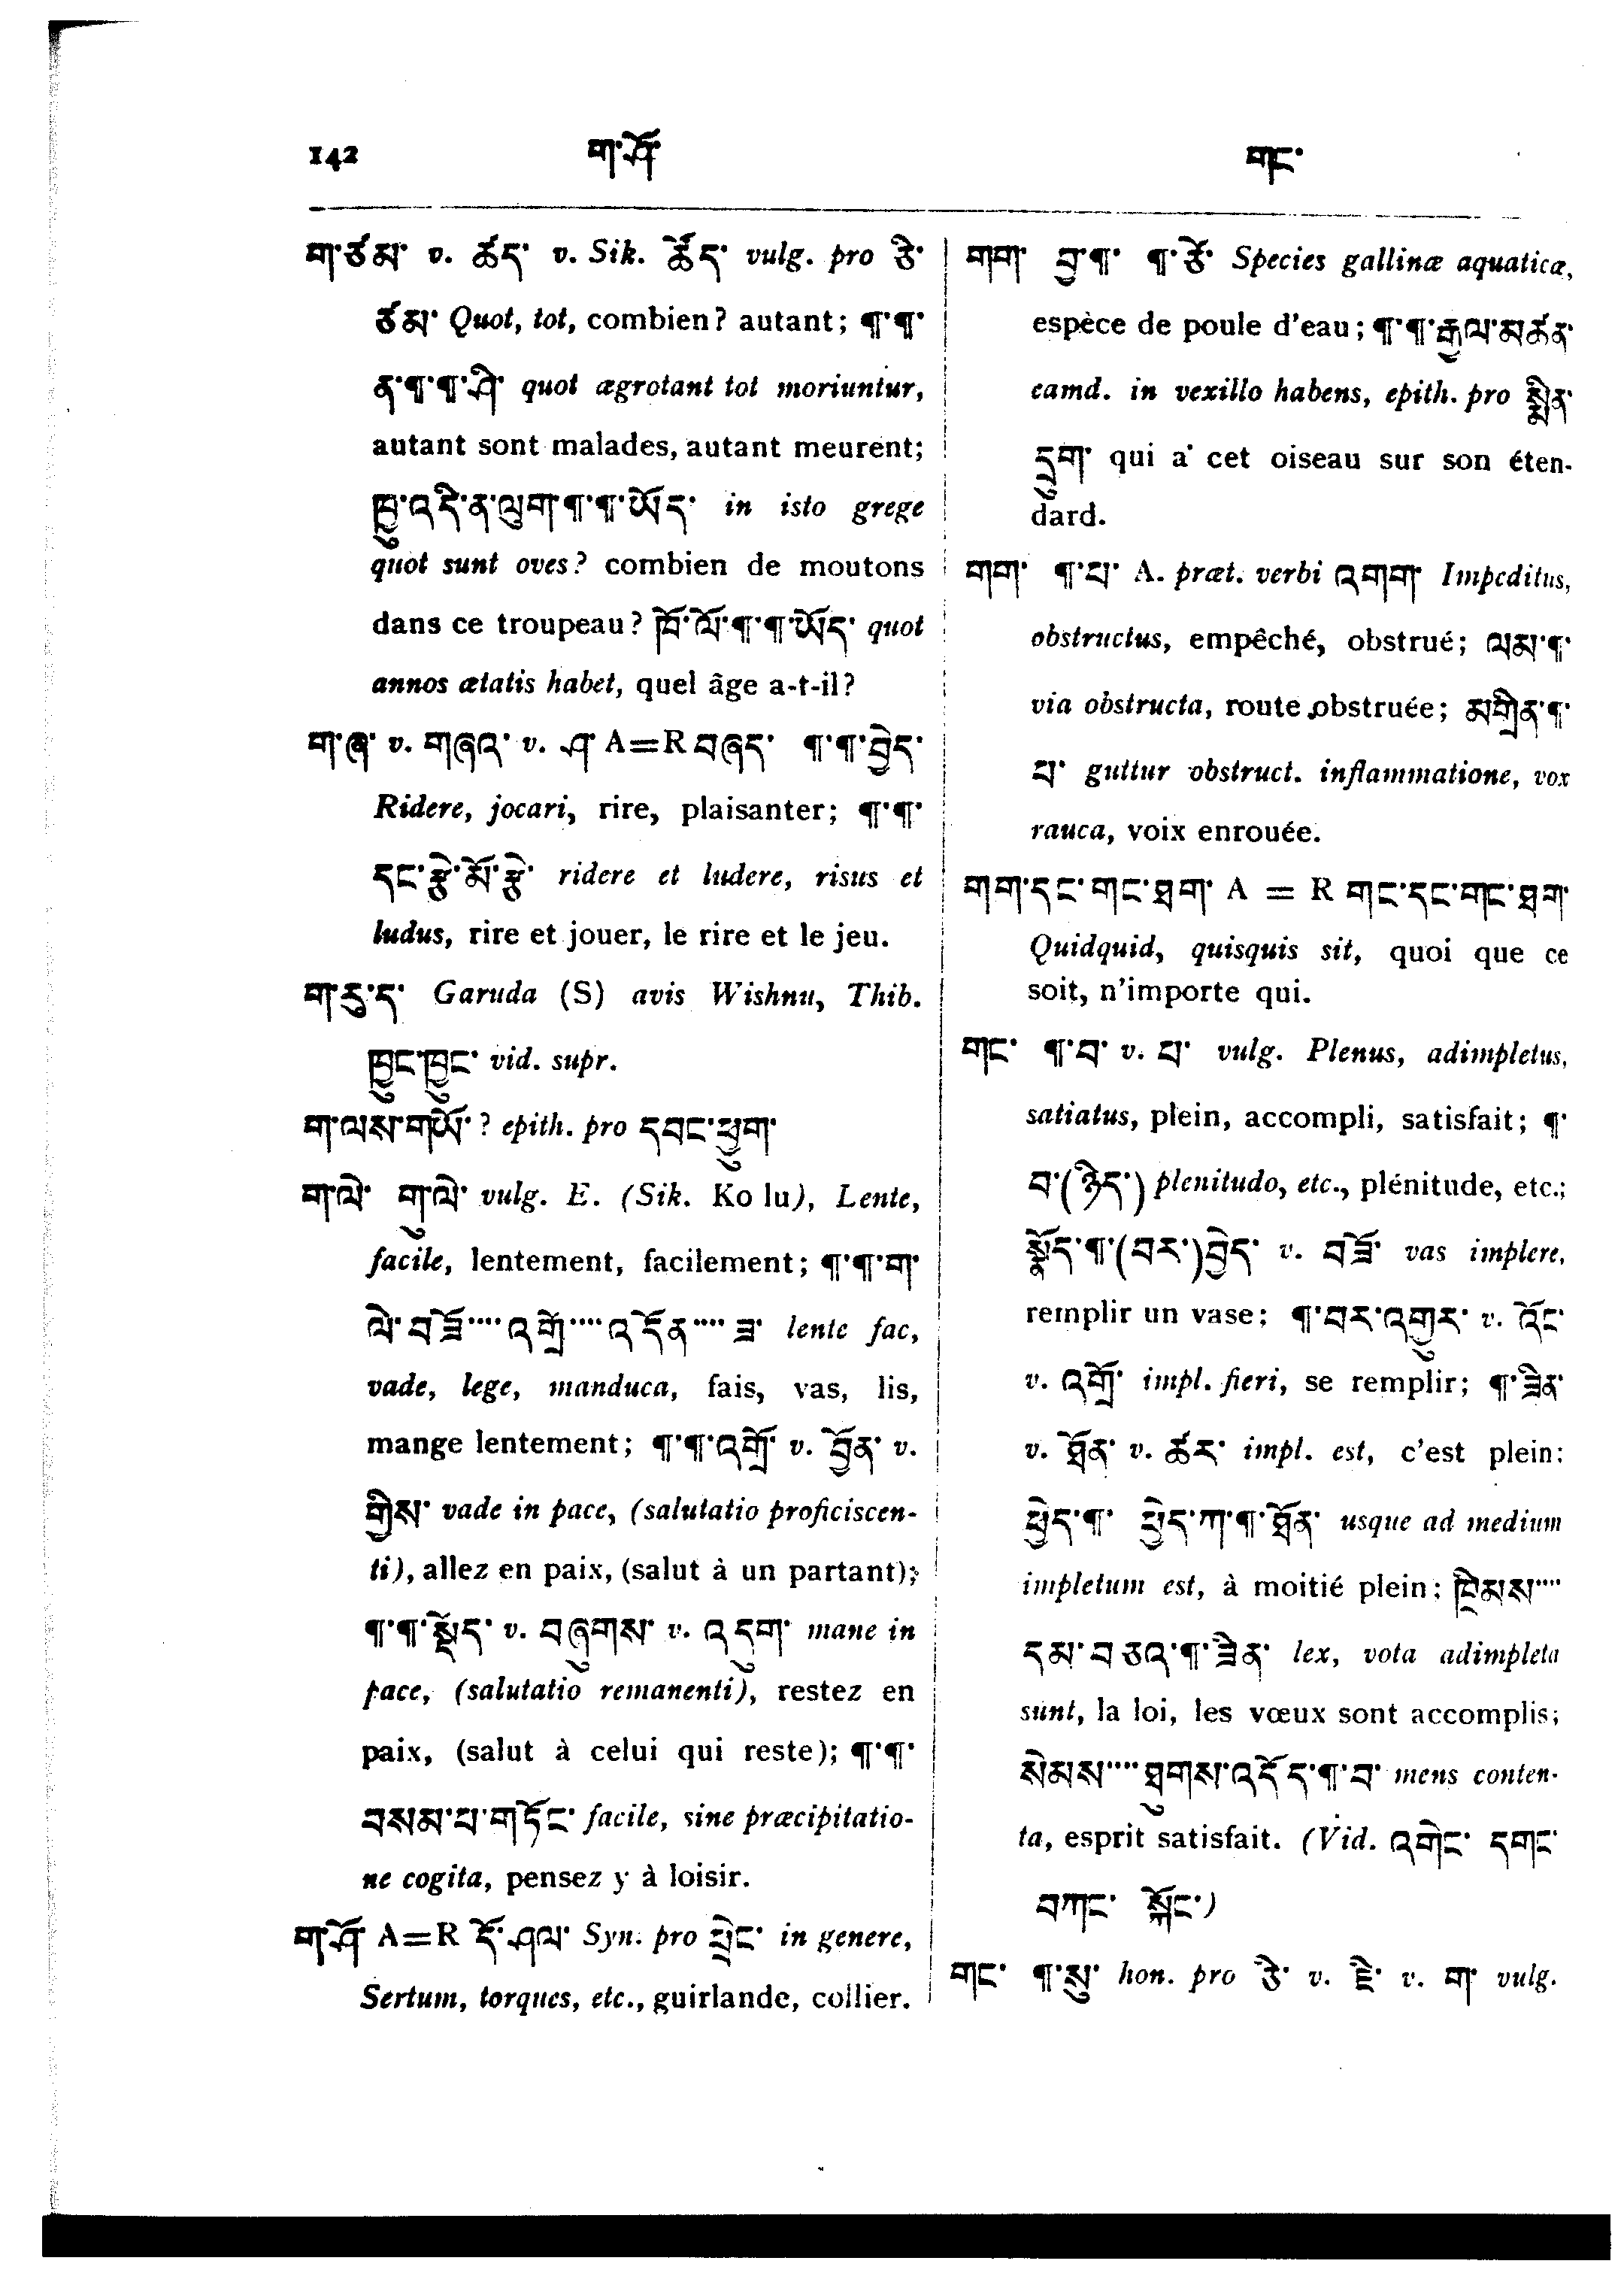 142 ག་ཤོ་ གང་
ག་ཙམ་ v. ཚད་ v. Sik. ཚོད་ vulg. pro ཅི་
ཙམ་ Quot, tot, combien? autant; ¶་¶་
ན་¶་¶་ཤི་ quot ægrotant tot moriuntur,
autant sont malades, autant meurent;
ཁྱུ་འདི་ན་ལུག་¶་¶་ཡོད་ in isto grege
quot sunt oves? combien de moutons
dans ce troupeau? ཁོ་ལོ་¶་¶་ཡོད་ quot
annos ætatis habet, quel âge a-t-il?
ག་ཞ་ v. གཞའ་ v. ཤ་ A=R བཞད་ ¶་¶་བྱེད་
Ridere, jocari, rire, plaisanter; ¶་¶་
དང་རྩེ་མོ་རྩེ་ ridere et ludere, risus et
ludus, rire et jouer, le rire et le jeu.
ག་རུ་ད་ Garuda (S) avis Wishnu, Thib.
ཁྱུང་ཁྱུང་ vid. supr.
ག་ལས་གཡོ་ ? epith. pro དབང་ཕྱུག་
ག་ལེ་ གུ་ལེ་ vulg. E. (Sik. Ko lu), Lente,
facile, lentement, facilement; ¶་¶་ག་
ལེ་བཟོ་···· འགྲོ་···· འདོན་···· ཟ་ lente fac,
vade, lege, manduca, fais, vas, lis,
mange lentement; ¶་¶་འགྲོ་ v. བྱོན་ v.
གྱིས་ vade in pace, (salutatio proficiscen-
ti), allez en paix, (salut à un partant);
¶་¶་སྡོད་ v. བཞུགས་ v. འདུག་ mane in
pace, (salutatio remanenti), restez en
paix, (salut à celui qui reste); ¶་¶་
བསམ་པ་གཏོང་ facile, sine præcipitatio-
ne cogita, pensez y à loisir.
ག་ཤོ་ A=R དོ་ཤལ་ Syn. pro ཕྲེང་ in genere,
Sertum, torques, etc., guirlande, collier.
གག་ བྱ་¶་ ¶་ཙོ་ Species gallinæ aquaticæ,
espèce de poule d'eau; ¶་¶་རྒྱལ་མཚན་
eamd. in vexillo habens, epith. pro སྨིན་
དྲུག་ qui a cet oiseau sur son éten-
dard.
གག་ ¶་པ་ A. præt. verbi འགག་ Impeditus,
obstructus, empêché, obstrué; ལམ་¶་
via obstructa, route obstruée; མགྲིན་¶་
པ་ guttur obstruct. inflammatione, vox
rauca, voix enrouée.
གག་དང་གང་ཐག་ A = R གང་དང་གང་ཐག་
Quidquid, quisquis sit, quoi que ce
soit, n'importe qui.
གང་ ¶་བ་ v. པ་ vulg. Plenus, adimpletus,
satiatus, plein, accompli, satisfait; ¶་
བ་(ཉིད་) plenitudo, etc., plénitude, etc.;
སྣོད་¶་(བར་)བྱེད་ v. བཟོ་ vas implere,
remplir un vase; ¶་བར་འགྱུར་ v. འོང་
v. འགྲོ་ impl. fieri, se remplir; ¶་ཟིན་
v. ཐོན་ v. ཚར་ impl. est, c'est plein;
ཕྱེད་¶་ ཕྱེད་ཀ་¶་ཐོན་ usque ad medium
impletum est, à moitié plein; ཁྲིམས་····
དམ་བཅའ་¶་ཟིན་ lex, vota adimpleta
sunt, la loi, les vœux sont accomplis;
སེམས་···· ཐུགས་འདོད་¶་བ་ mens conten-
ta, esprit satisfait. (Vid. འགེང་ དགང་
བཀང་ སྐོང་)
གང་ ¶་སུ་ hon. pro ཅི་ v. ཇི་ v. ག་ vulg.